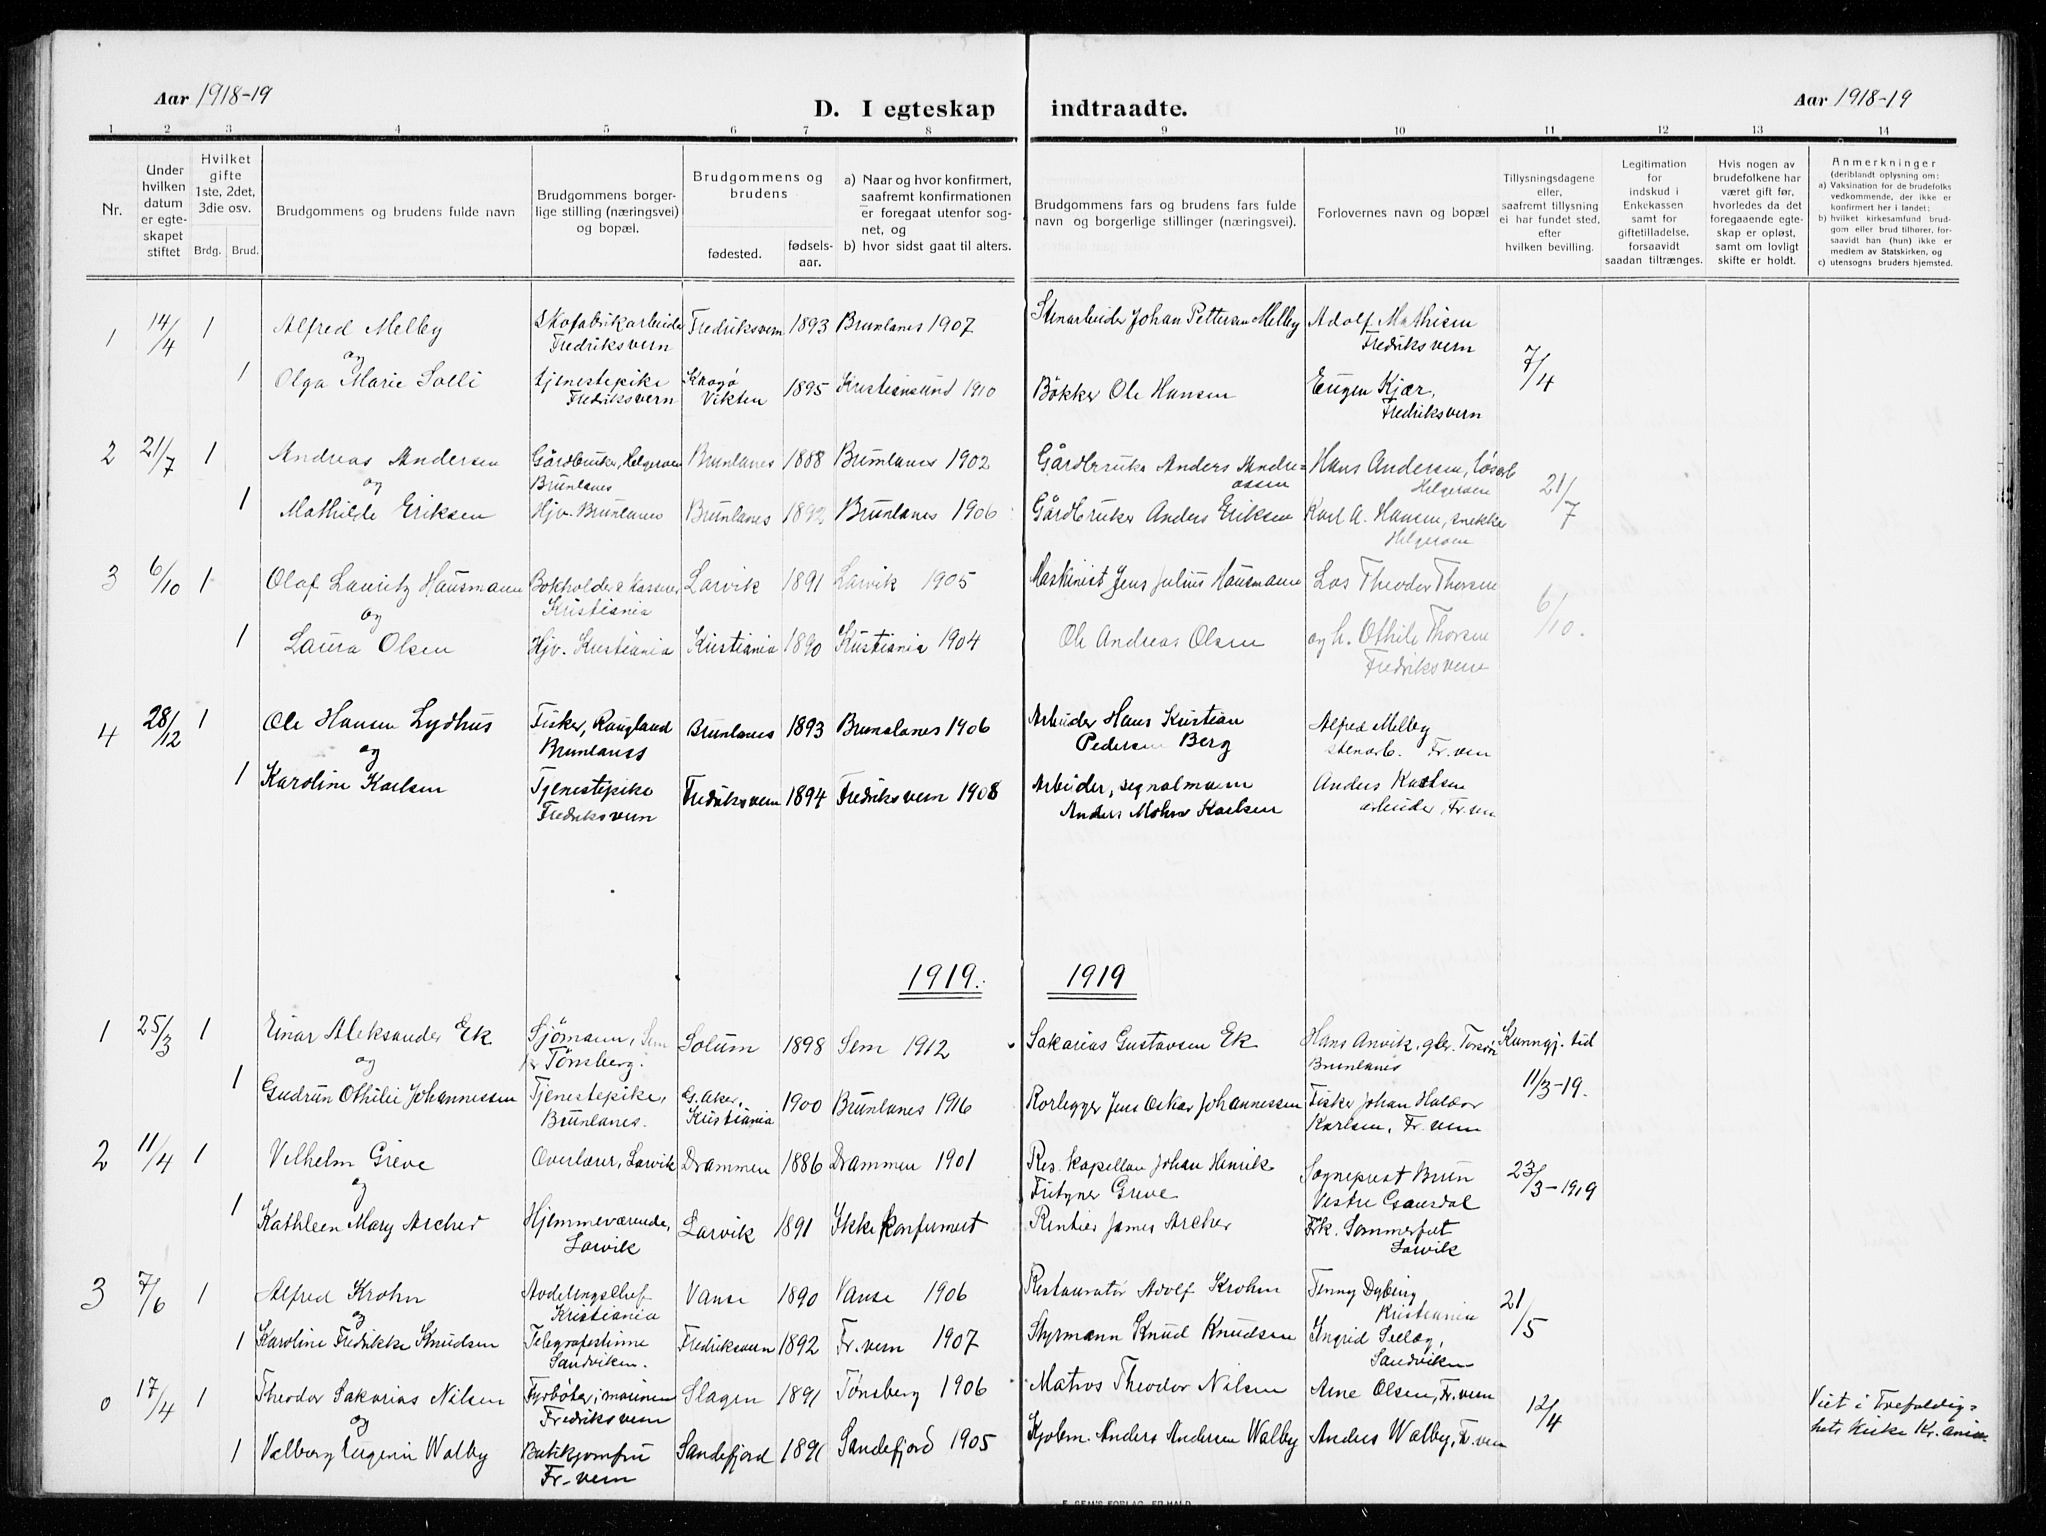 Aar 1918-19
D. I egteskap indtraadte.
Aar 1918-19
1 2 3 4 5 6 7 8 9 10 11 12 13 14
Nr.
Under hvilken datum er egteskapet stiftet
Hvilket gifte 1ste, 2det, 3die osv.
Brdg. Brud.
Brudgommens og brudens fulde navn
Brudgommens borgerlige stilling (næringsvei) og bopæl.
Brudgommens og brudens
fødested.
fødselsaar.
a) Naar og hvor konfirmert, saafremt konfirmationen er foregaat utenfor sognet, og
b) hvor sidst gaat til alters.
Brudgommens fars og brudens fars fulde navn og borgerlige stillinger (næringsvei).
Forlovernes navn og bopæl
Tillysningsdagene eller, saafremt tillysning ei har fundet sted, efter hvilken bevilling.
Legitimation for indskud i Enkekassen samt for giftetilladelse, forsaavidt saadan tiltrænges.
Hvis nogen av brudefolkene har været gift før, hvorledes da det foregaaende egteskap er opløst, samt om lovligt skifte er holdt.
Anmerkninger (deriblandt oplysning om:
a) Vaksination for de brudefolks vedkommende, der ikke er konfirmert her i landet;
b) hvilket kirkesamfund brudgom eller brud tilhører, forsaavidt han (hun) ikke er medlem av Statskirken, og
c) utensogns bruders hjemsted.
1 14/4 1 Alfred Melby Skofabrikarbeider Fredriksvern Fredriksvern 1893 Brunlanes 1907 Stenarbeider Johan Pettersen Melby Adolf Mathisen Fredriksvern 7/4
og
1 Olga Marie Solli tjenestepike Fredriksvern Vikten 1895 Kristiansund 1910 Bökker Ole Hansen Eugen Kjær, Fredriksvern
2 21/7 1 Andreas Andersen Gårdbruker, Helgeroen Brunlanes Brunlanes 1888 Brunlanes 1902 Gårdbruker Anders Andreassen Hans Andersen, Helgeroen 21/7
og
1 Mathilde Eriksen Hjv. Brunlanes Brunlanes 1892 Brunlanes 1906 Gårdbruker Anders Eriksen Karl A. Hansen, snekker Helgeroen
3 6/10 1 Olaf Lauritz Hausmann Bokholder & kasserer, Kristiania Larvik 1891 Larvik 1905 Maskinist Jens Julius Hausmann Los Theodor Thorsen 6/10.
og
1 Laura Olsen Hjv. Kristiania Kristiania 1890 Kristiania 1904 Ole Andreas Olsen og h. Othile Thorsen Fredriksvern
4 28/12 1 Ole Hansen Lydhus Fisker, Raugland Brunlanes Brunlanes 1893 Brunslanes 1906 Arbeider Hans Kristian Pedersen Berg Alfred Melby stenarb. Fr.vern
og
1 Karoline Karlsen Tjenestepike Fredriksvern Fredriksvern 1894 Fredriksvern 1908 Arbeider, signalmann Anders Mohr Karlsen Anders Karlsen arbeider, Fr.vern
1919. 1919
1 25/3 1 Einar Aleksander Ek Sjömann, Sem pr Tönsberg. Solum 1898 Sem 1912 Sakarias Gustavsen Ek Hans Anvik, Brunlanes Kunngj. tid 11/3-19.
og
1 Gudrun Othilie Johannessen Tjenestepike, Brunlanes. G. Aker, Kristiania 1900 Brunlanes 1916 Rörlegger Jens Oskar Johannessen Fisker Johan Haldor Karlsen, Fr. vern
2 11/4 1 Vilhelm Greve Overlærer, Larvik Drammen 1886 Drammen 1901 Res. kapellan Johan Henrik Greve Sogneprest Brun Vestre Gausdal 23/3-1919
og
1 Kathleen Mary Archer Hjemmeværende, Larvik Larvik 1891 Ikke konfirmert Rentier James Archer Frk. Sommerfelt Larvik
3 7/6 1 Alfred Krohn Avdelingschef Kristiania Vanse 1890 Vanse 1906 Restauratör Adolf Krohn Kristiania 21/5
og
1 Karoline Fredrikke Knudsen Telegrafistinne Sandviken. Fredriksvern 1892 Fr. vern 1907 Styrmann Knud Knudsen Ingrid Selæg, Sandviken
0 17/4 1 Theodor Sakarias Nilsen Fyrböter i marinen Fredriksvern Slagen 1891 Tönsberg 1906 Matros Theodor Nilsen Arne Olsen, Fr.vern 12/4 Viet i Trefoldighets Kirke Kr.ania
og
1 Valborg Eugenie Walby Butikjomfru Fr-vern Sandefjord 1891 Sandefjord 1905 Kjøbm. Anders Andersen Walby Anders Walby, Fr.vern